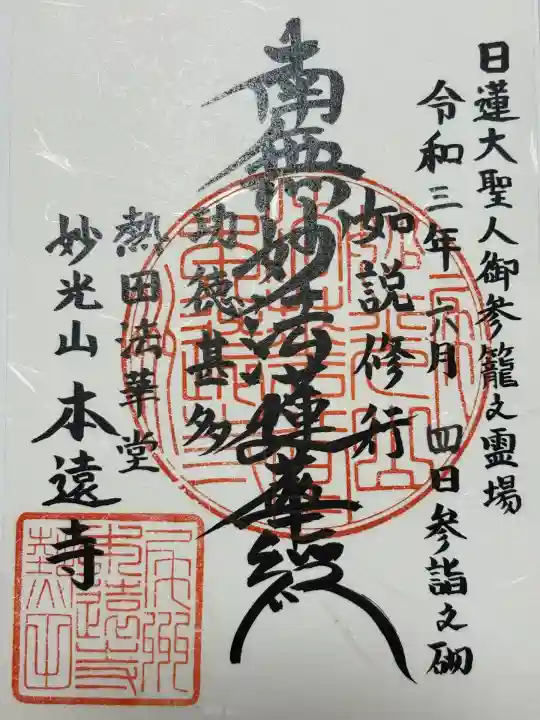 日蓮大聖人御参籠之霊場
令和三年六月四日参詣之砌
如説修行
南無妙法蓮華経
功徳甚多
熱田法華堂
妙光山本遠寺
尾州
本遠寺
熱田